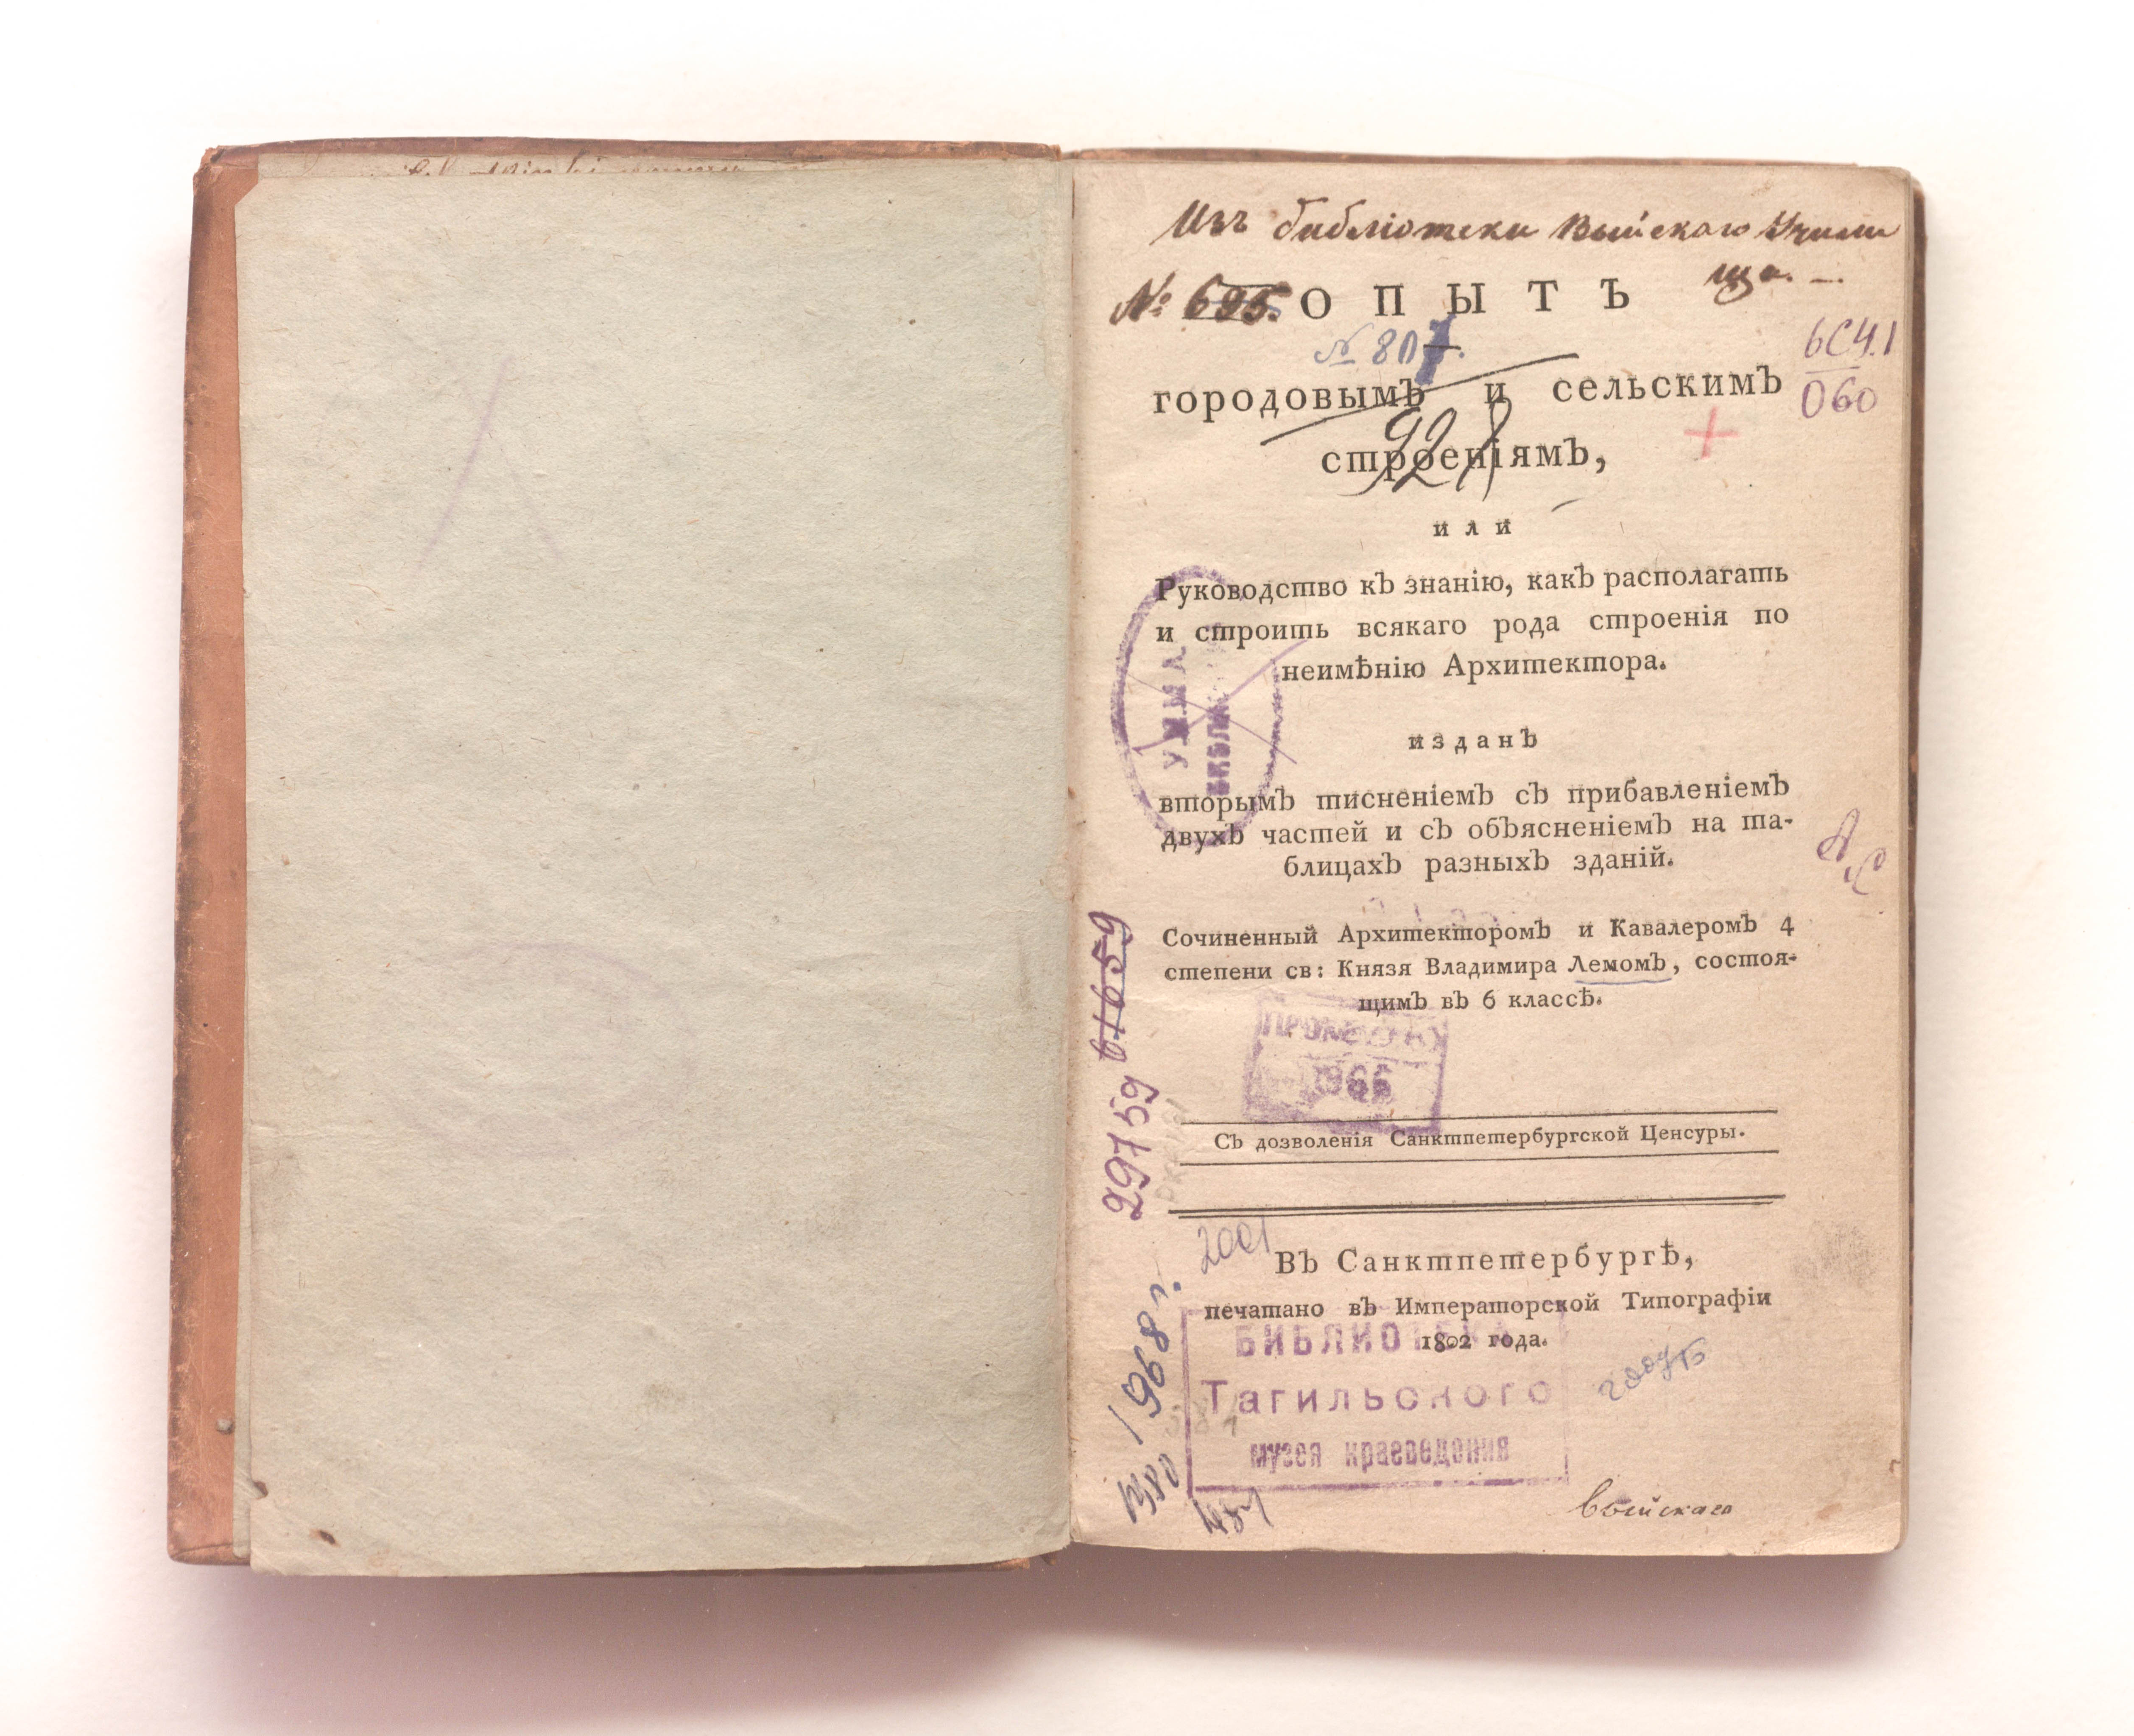 Изъ библіотеки Выйскаго Учили
ща. —
№ 695.
ОПЫТЪ
№ 807.
6С4.1
060
городовымъ и сельскимъ
928
строеніямъ,
или
Руководство къ знанію, какъ располагать
и строить всякаго рода строенія по
неимѣнію Архитектора.
изданъ
вторымъ тисненіемъ съ прибавленіемъ
двухъ частей и съ объясненіемъ на та-
блицахъ разныхъ зданій.
Сочиненный Архитекторомъ и Кавалеромъ 4
степени св: Князя Владимира Лемомъ, состоя-
щимъ въ 6 классѣ.
1966
Съ дозволенія Санктпетербургской Ценсуры.
29759 61659
2001
Въ Санктпетербургѣ,
печатано въ Императорской Типографіи
1802 года.
БИБЛИОТЕКА
Тагильского
музея краеведения
1380 / 1968 г.
Выйскаго